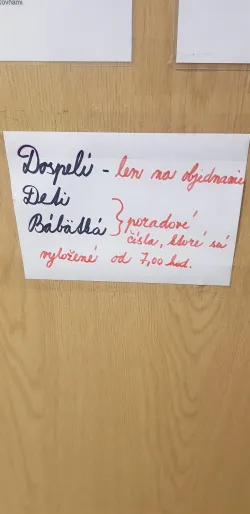 kovňami
Dospelí - len na objednanie
Deti
Bábätká } poradové
čísla, ktoré sú
vyložené od 7,00 hod.